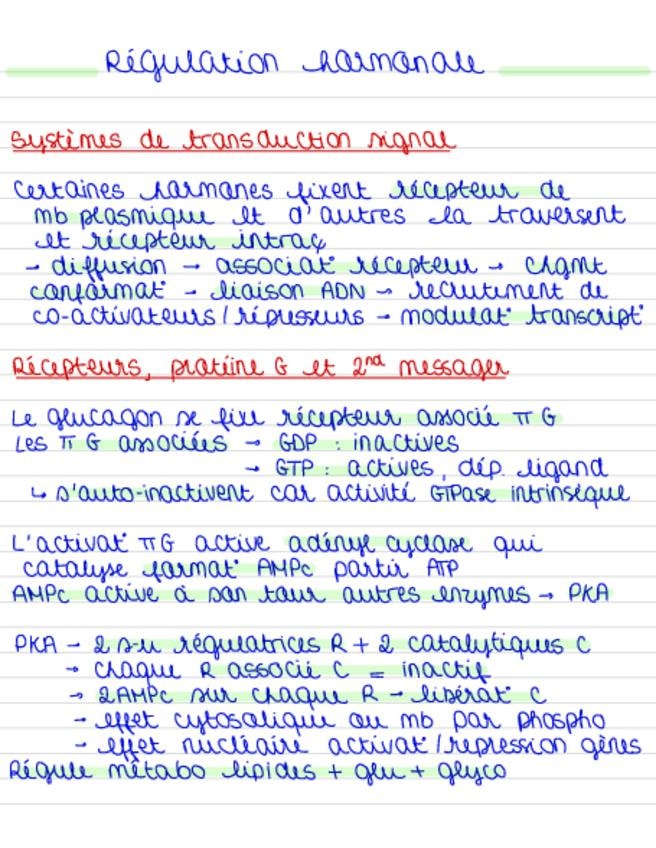 Régulation hormonale
Systèmes de transduction signal
Certaines hormones fixent récepteur de
mb plasmique et d'autres la traversent
et récepteur intraç
→ diffusion → associat° récepteur → chgmt
conformat° → liaison ADN → recrutement de
co-activateurs / répresseurs → modulat° transcript°
Récepteurs, protéine G et 2nd messager
Le glucagon se fixe récepteur associé π G
Les π G associées → GDP : inactives
→ GTP : actives, dép. ligand
↳ s'auto-inactivent car activité GTPase intrinsèque
L'activat° πG active adényl cyclase qui
catalyse format° AMPc partir ATP
AMPc active à son tour autres enzymes → PKA
PKA → 2 s-u régulatrices R + 2 catalytiques C
→ chaque R associé C = inactif
→ 2AMPc sur chaque R → libérat° C
→ effet cytosolique ou mb par phospho
→ effet nucléaire activat° / repression gènes
Régule métabo lipides + glu + glyco